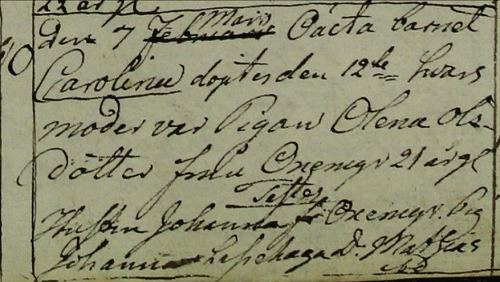 22 årgl.
Mars
den 7 Februarii Oäcta barnet
Carolina döptes den 12te hvars
moder var Pigan Olena Ols-
dotter från Oxemyr 21 årgl
Testes
Hustru Johanna Oxemyr. Pig
Johanna D. Mathias